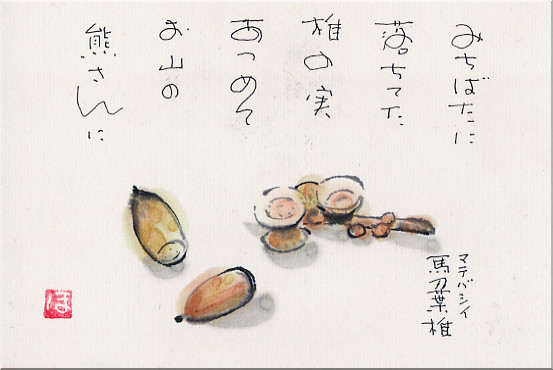 みちばたに
落ちてた
椎の実
あつめて
お山の
熊さんに
マテバシイ
馬刀葉椎